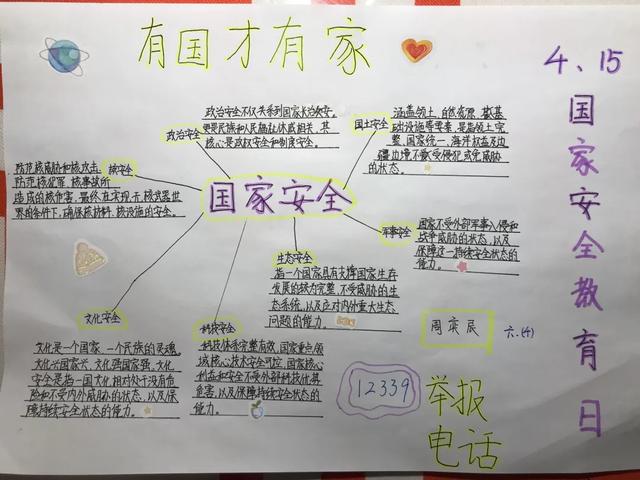 有国才有家
4、15
国家安全教育日
政治安全
政治安全不仅关系到国家长治久安。
更是民族和人民福祉休戚相关，其
核心是政权安全和制度安全。
国土安全
涵盖领土、自然资源、
础设施等要素，是指领土完
整、国家统一、海洋权益及边
疆边境不受侵犯或免威胁
的状态。
核安全
防范核威胁和核攻击、
防范核犯罪、核事故所
造成的核伤害，最终在实现无核武器世
界的条件下，确保核材料、核设施的安全。
国家安全
军事安全
国家不受外部军事入侵和
战争威胁的状态，以及
保障这一持续安全状态的
能力。
生态安全
指一个国家具有支撑国家生存
发展的较为完整，不受威胁的生
态系统，以及应对内外重大生态
问题的能力。
文化安全
文化是一个国家、一个民族的灵魂。
文化兴国家兴，文化强国家强，文化
安全是指一国文化相对处于没有危
险和不受内外威胁的状态，以及保
障持续安全状态的能力。
科技安全
科技体系完整有效，国家重点领
域核心技术安全可控，国家核心
利益和安全不受外部科技优势
危害，以及保障持续安全状态的
能力。
周奕辰
六、(4)
12339
举报
电话